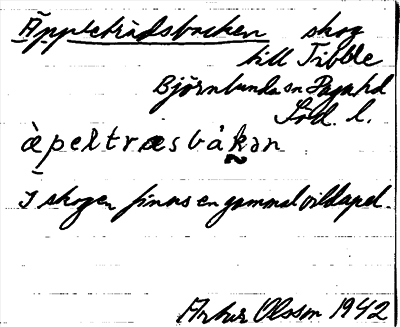 Äppleträdsbacken skog
till Tibble
Björnlunda sn Daga hd
Söd. l.
àpeltræsbàkən
I skogen finns en gammal vildapel.
Artur Olsson 1942